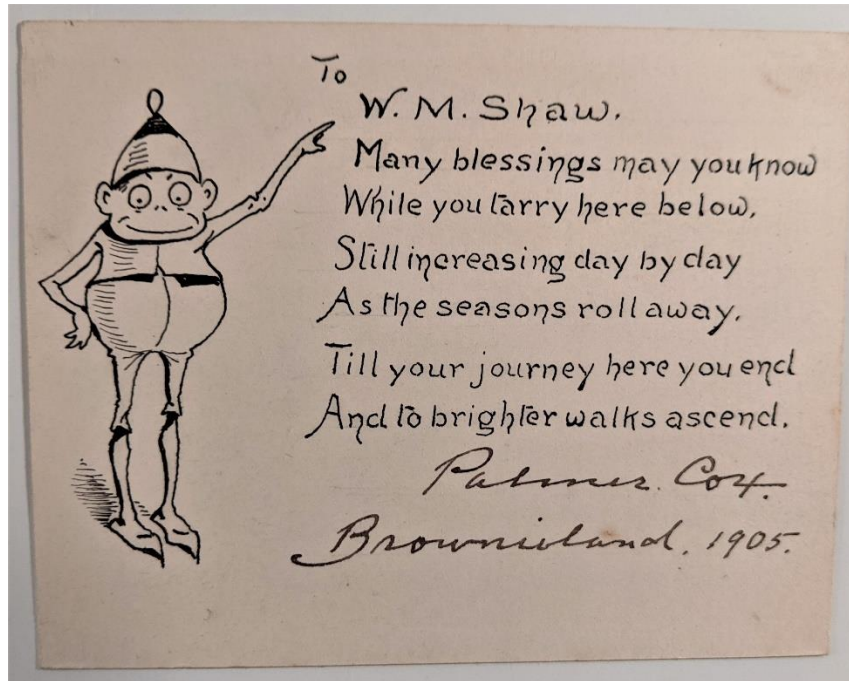 To
W. M. Shaw.
Many blessings may you know
While you tarry here below,
Still increasing day by day
As the seasons roll away,
Till your journey here you end
And to brighter walks ascend.
Palmer Cox.
Brownieland. 1905.